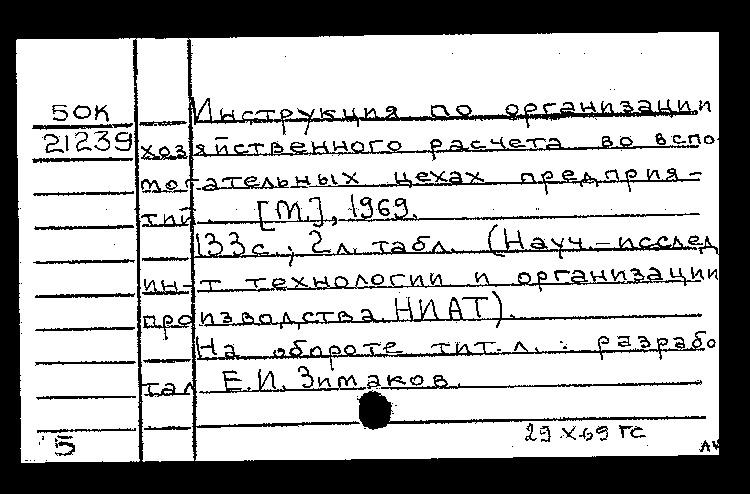 50К Инструкция по организации
21239 хозяйственного расчета во вспо-
могательных цехах предприя-
тий. [М.], 1969.
133с.; 2л. табл. (Науч.-исслед
ин-т технологии и организации
производства НИАТ).
На обороте тит. л. : разрабо
тал Е.И. Зимаков.
29 X 69 ГС
5